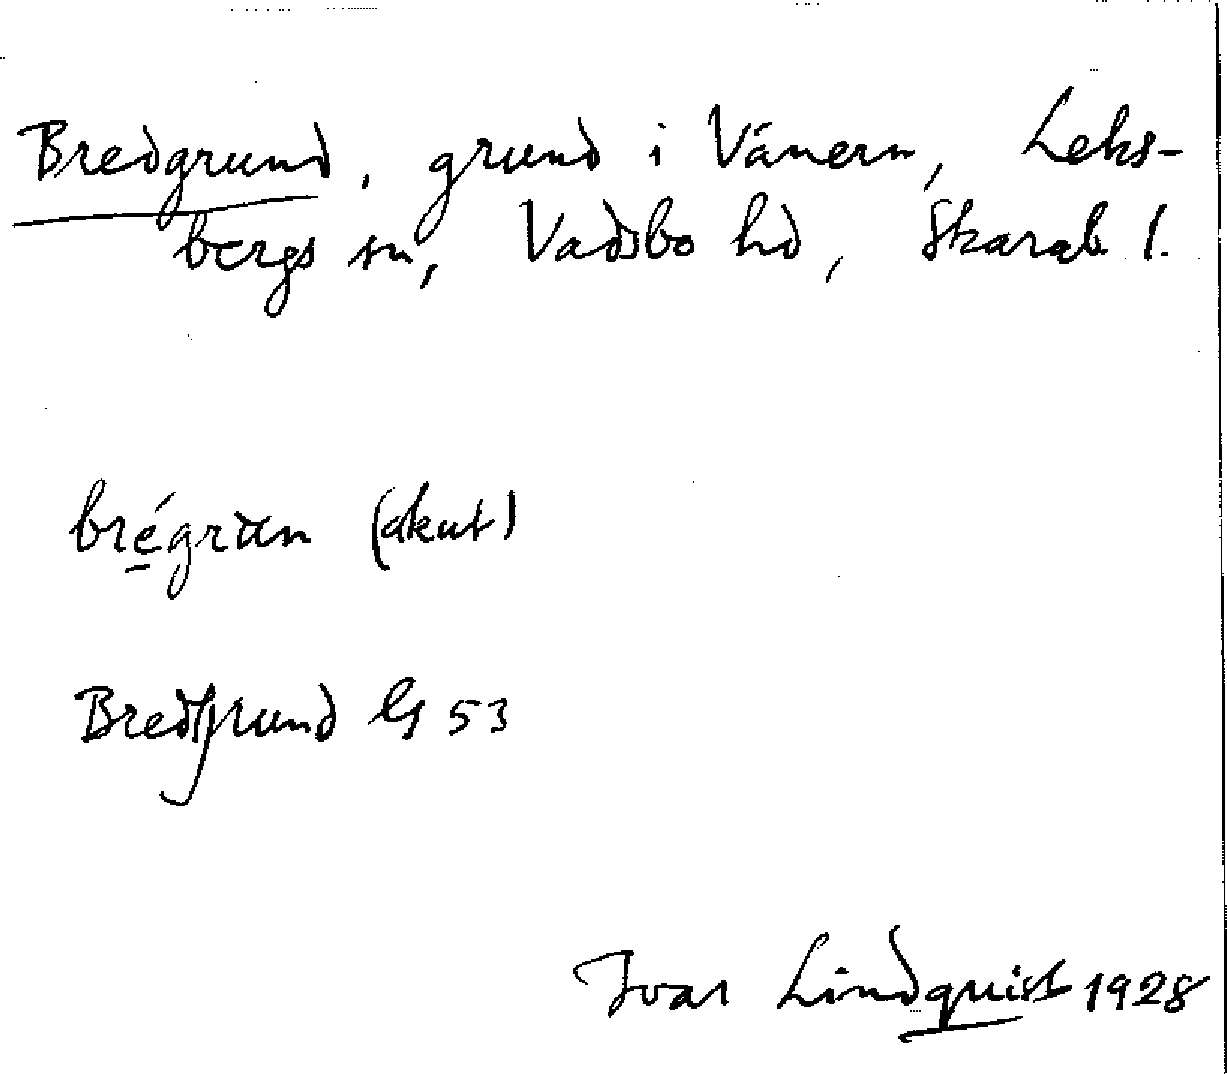 Bredgrund, grund i Vänern, Leks-
bergs sn, Vadsbo hd, Skarab. l.
brégrun (akut)
Bredgrund G 53
Ivar Lindquist 1928